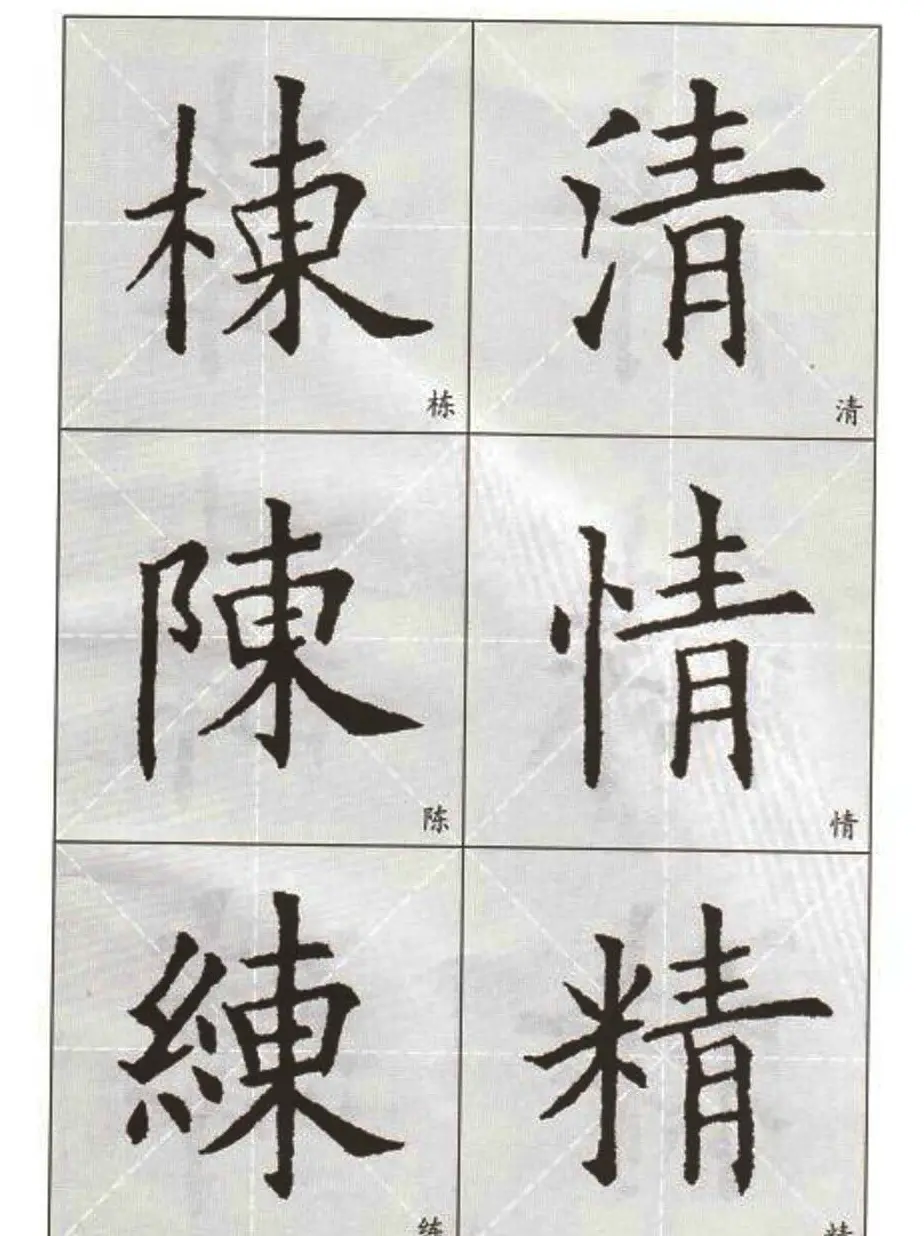 棟 清
栋 清
陳 情
陈 情
練 精
练 精